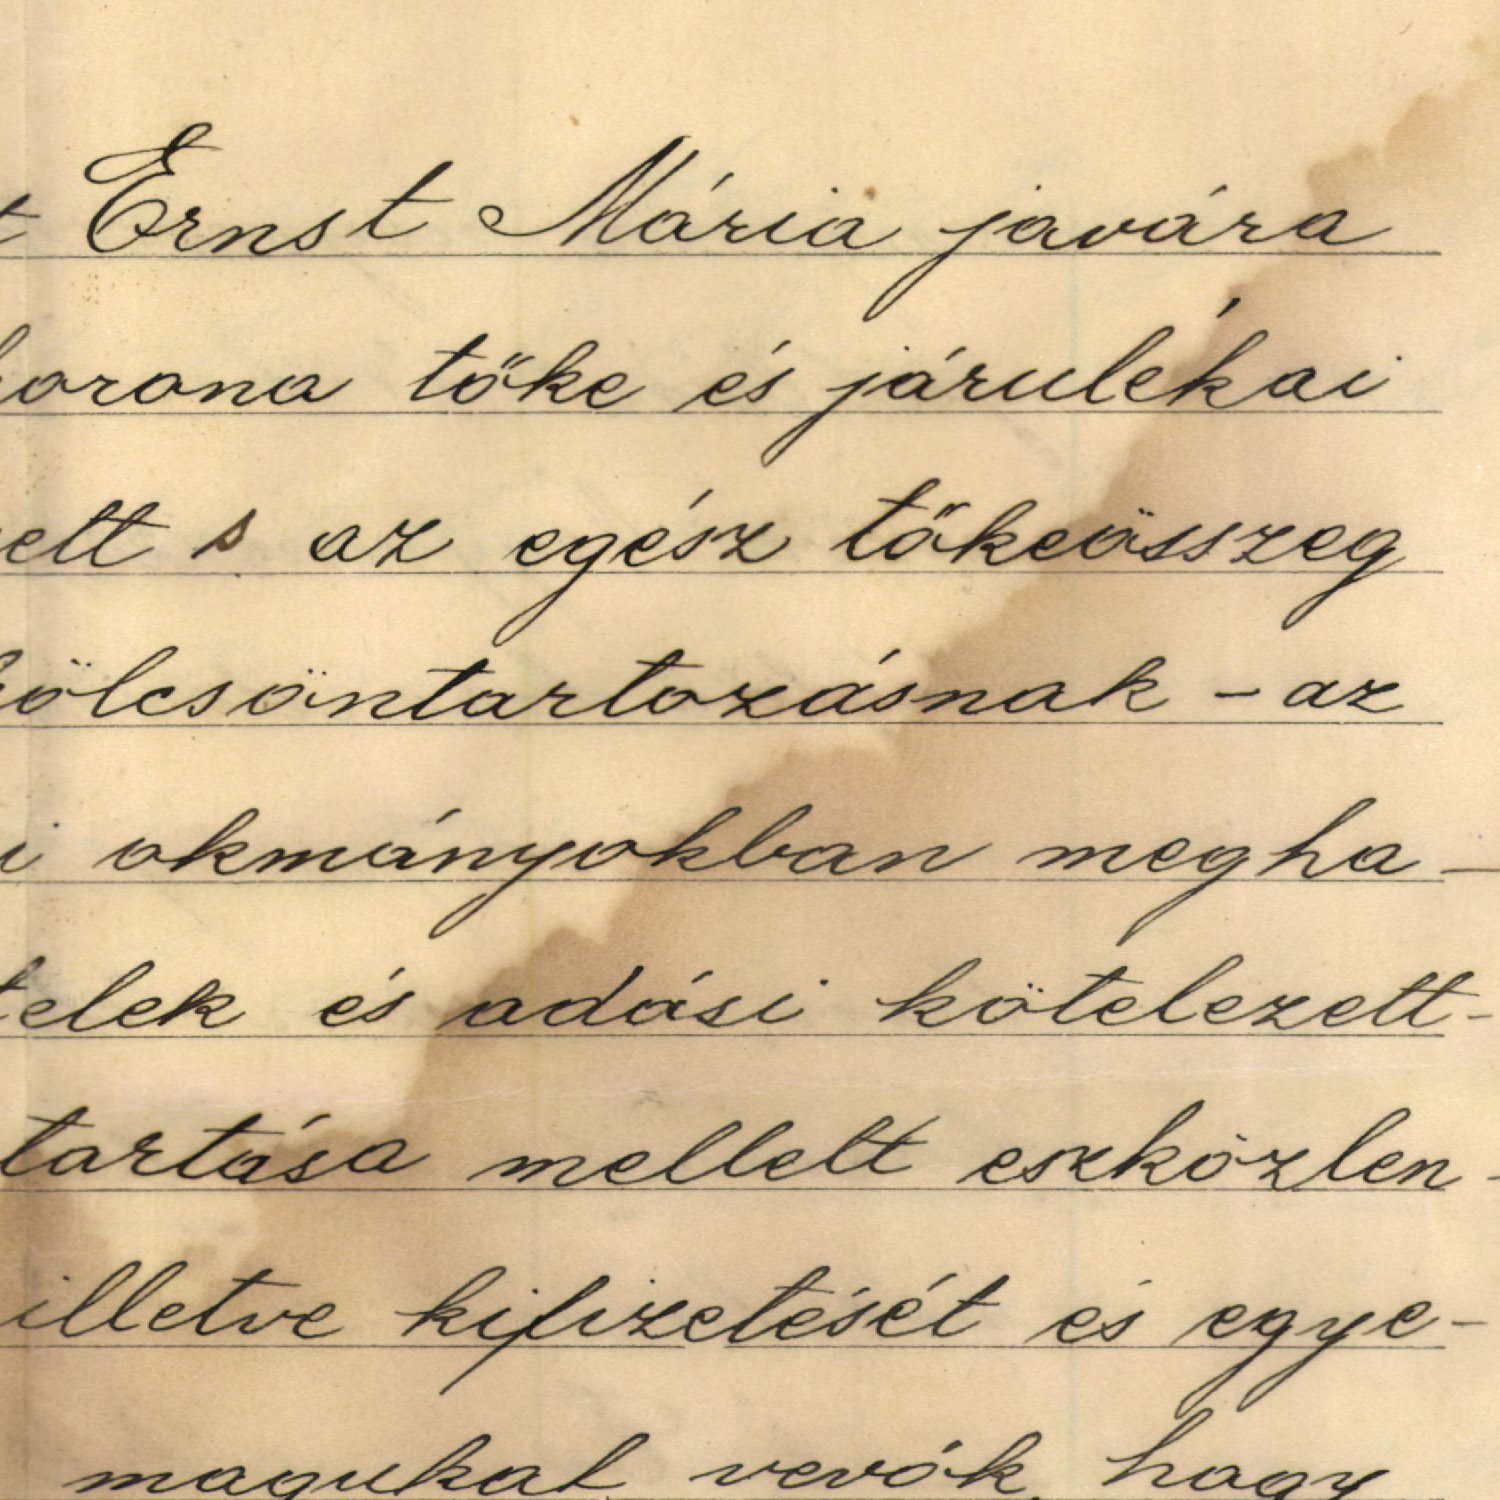 t Ernst Mária javára
korona tőke és járulékai
ett s az egész tőkeösszeg
kölcsöntartozásnak - az
i okmányokban megha-
telek és adási kötelezett-
tartása mellett eszközlen-
illetve kifizetését és egye-
magukat vevők, hogy